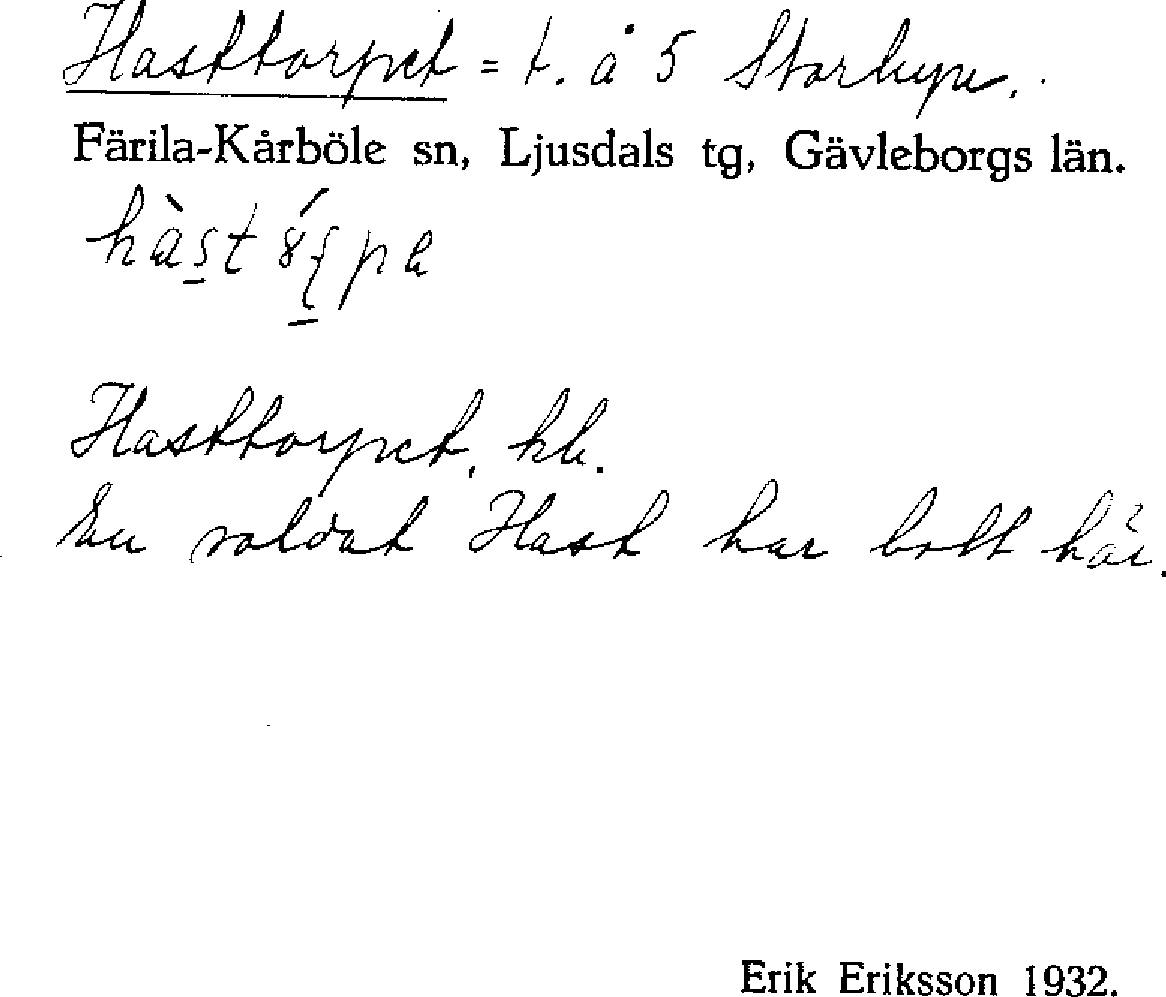 Hasttorpet = t. å 5 Storhyn.
Färila-Kårböle sn, Ljusdals tg, Gävleborgs län.
Hasttorpet, kb.
En soldat Hast har bott här.
Erik Eriksson 1932.